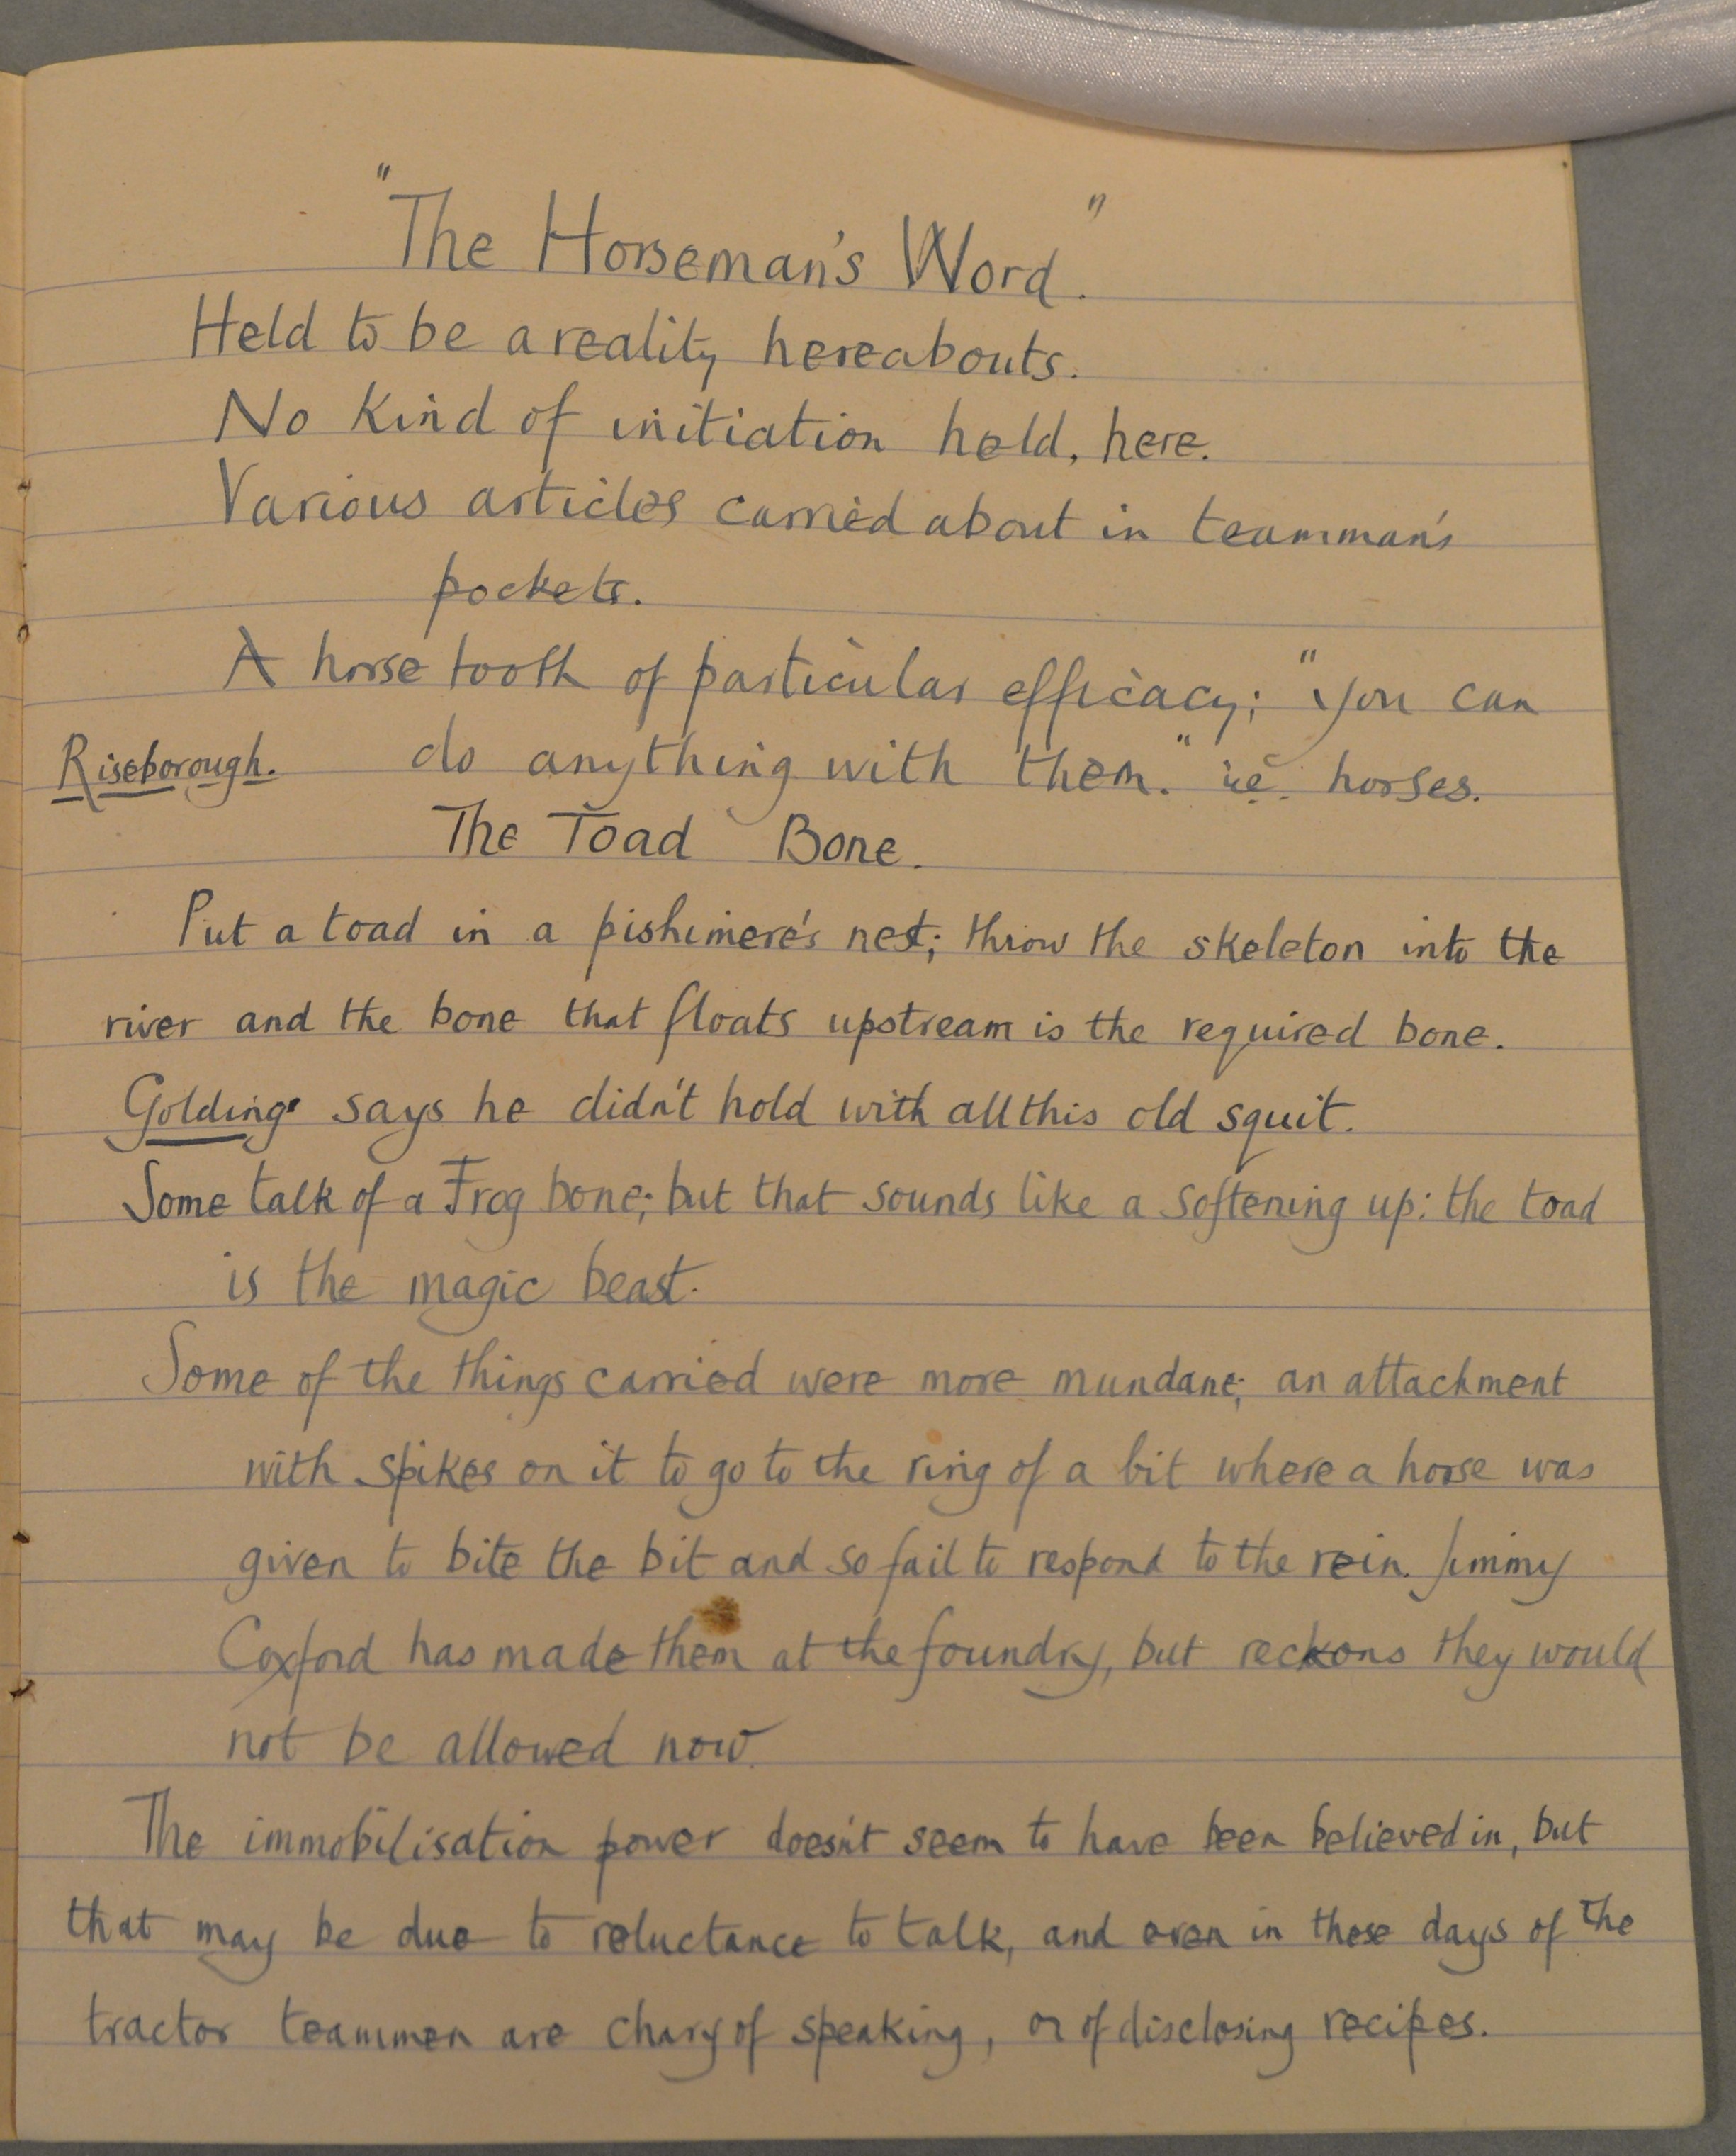 "The Horseman's Word."
Held to be a reality hereabouts.
No kind of initiation held, here.
Various articles carried about in teamman's
pockets.
A horse tooth of particular efficacy; "you can
Riseborough. do anything with them." i.e. horses.
The Toad Bone.
Put a toad in a pishimere's nest; throw the skeleton into the
river and the bone that floats upstream is the required bone.
Golding says he didn't hold with all this old squit.
Some talk of a Frog bone; but that sounds like a softening up: the toad
is the magic beast.
Some of the things carried were more mundane; an attachment
with spikes on it to go to the ring of a bit where a horse was
given to bite the bit and so fail to respond to the rein. Jimmy
Coxford has made them at the foundry, but reckons they would
not be allowed now.
The immobilisation power doesn't seem to have been believed in, but
that may be due to reluctance to talk, and even in these days of the
tractor teammen are chary of speaking, or of disclosing recipes.